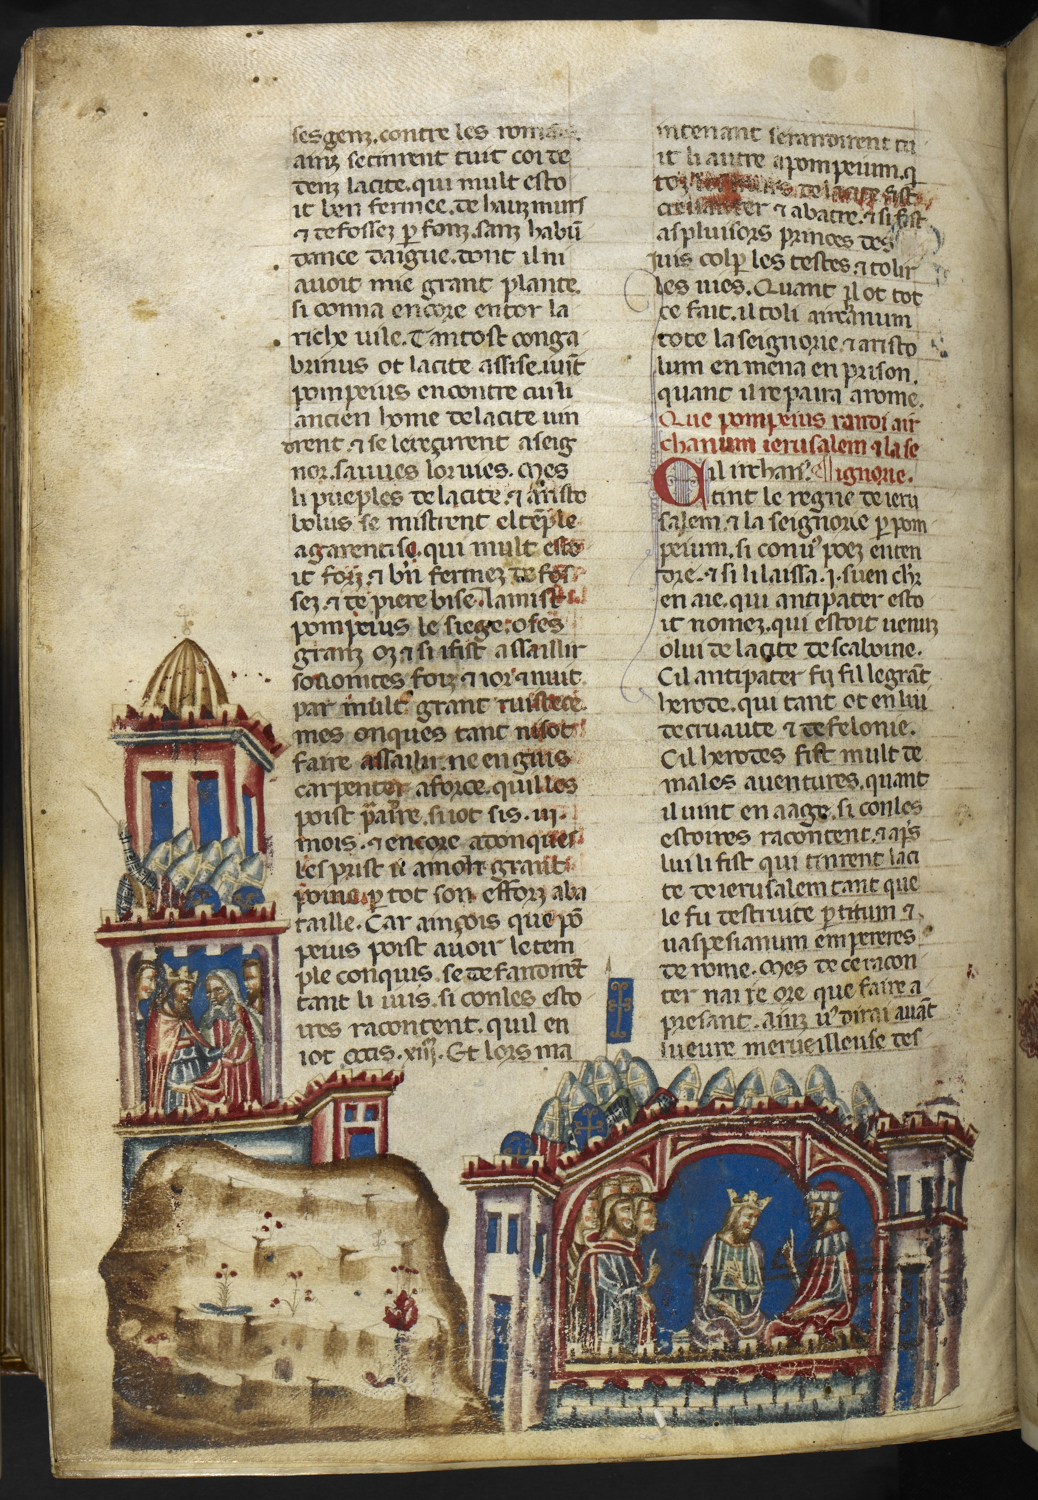 ses genz. contre les romains.
ainz se tinrent tuit coi de
denz la cite. qui mult esto
it ben fermee. de hauz murs
⁊ de fossez ꝑ fonz. sanz habū
dance daigue. dont il ni
auoit mie grant plante.
si conna encore entor la
riche uile. Tantost con ga
binius ot la cite assise. uīt
pompeius en contre cui li
ancien home de la cite uin
drent. ⁊ se le reçurent a seig
nor. sauues lor uies. Mes
li pueples de la cite. ⁊ aristo
bolus se mistrent el tēple
qui mult esto
it forz. ⁊ bn̄ fermez de fos
sez. ⁊ de piere bise. la mist
pompeius le siege. o ses
granz oz ⁊ si fist assaillir
souonttes foiz ⁊ ior ⁊ nuit.
par mult grant ruistece.
mes onques tant ni sot
faire assailir. ne en guis
carpenter a force. quil les
poist prāre. si iot sis. iij.
mois. ⁊ encore adonques
les prist it a moh̄t grant
poine. ꝑ tot son efforz a ba
taille. Car ainçois que pō
peius poist auoir le tem
ple conquis. se defandirēt
tant li iuis. si con les esto
ires racontent. quil en
iot occis. xiij. Et lors ma
intenant se randirent tu
it li autre a pompeium. q̄
toz de la cite fist
⁊ abatre. ⁊ si fist
as pluisors princes des
iuis colp̄ les testes. ⁊ tolir
les uies. Quant il ot tot
ce fait. il toli aircanum
tote la seignorie. ⁊ aristo
lum en mena en prison.
quant il repaira a rome.
Que pompeius randi air
chanum ierusalem ⁊ la se
Cil irchan'. ignorie.
tint le regne de ieru
salem. ⁊ la seignorie ꝑ pom
peium. si con uͦ poez enten
dre. ⁊ si li laissa .j. suen chr̄
en aie. qui antipater esto
it nomez. qui estoit uenuz
o lui de la cite de scaloine.
Cil antipater fu fil le grāt
herode. qui tant ot en lui
de cruaute ⁊ de felonie.
Cil herodes fist mult de
males auentures. quant
il uint en aage. si con les
estoires racontent. ⁊ ap̄s
lui li fist qui tinrent la ci
te de ierusalem tant que
le fu destruite ꝑ titum ⁊
uaspesianum empereres
de rome. Mes de ce racon
ter nai ie ore que faire a
presant. ainz uͦ dirai auāt
lueure merueilleuse des